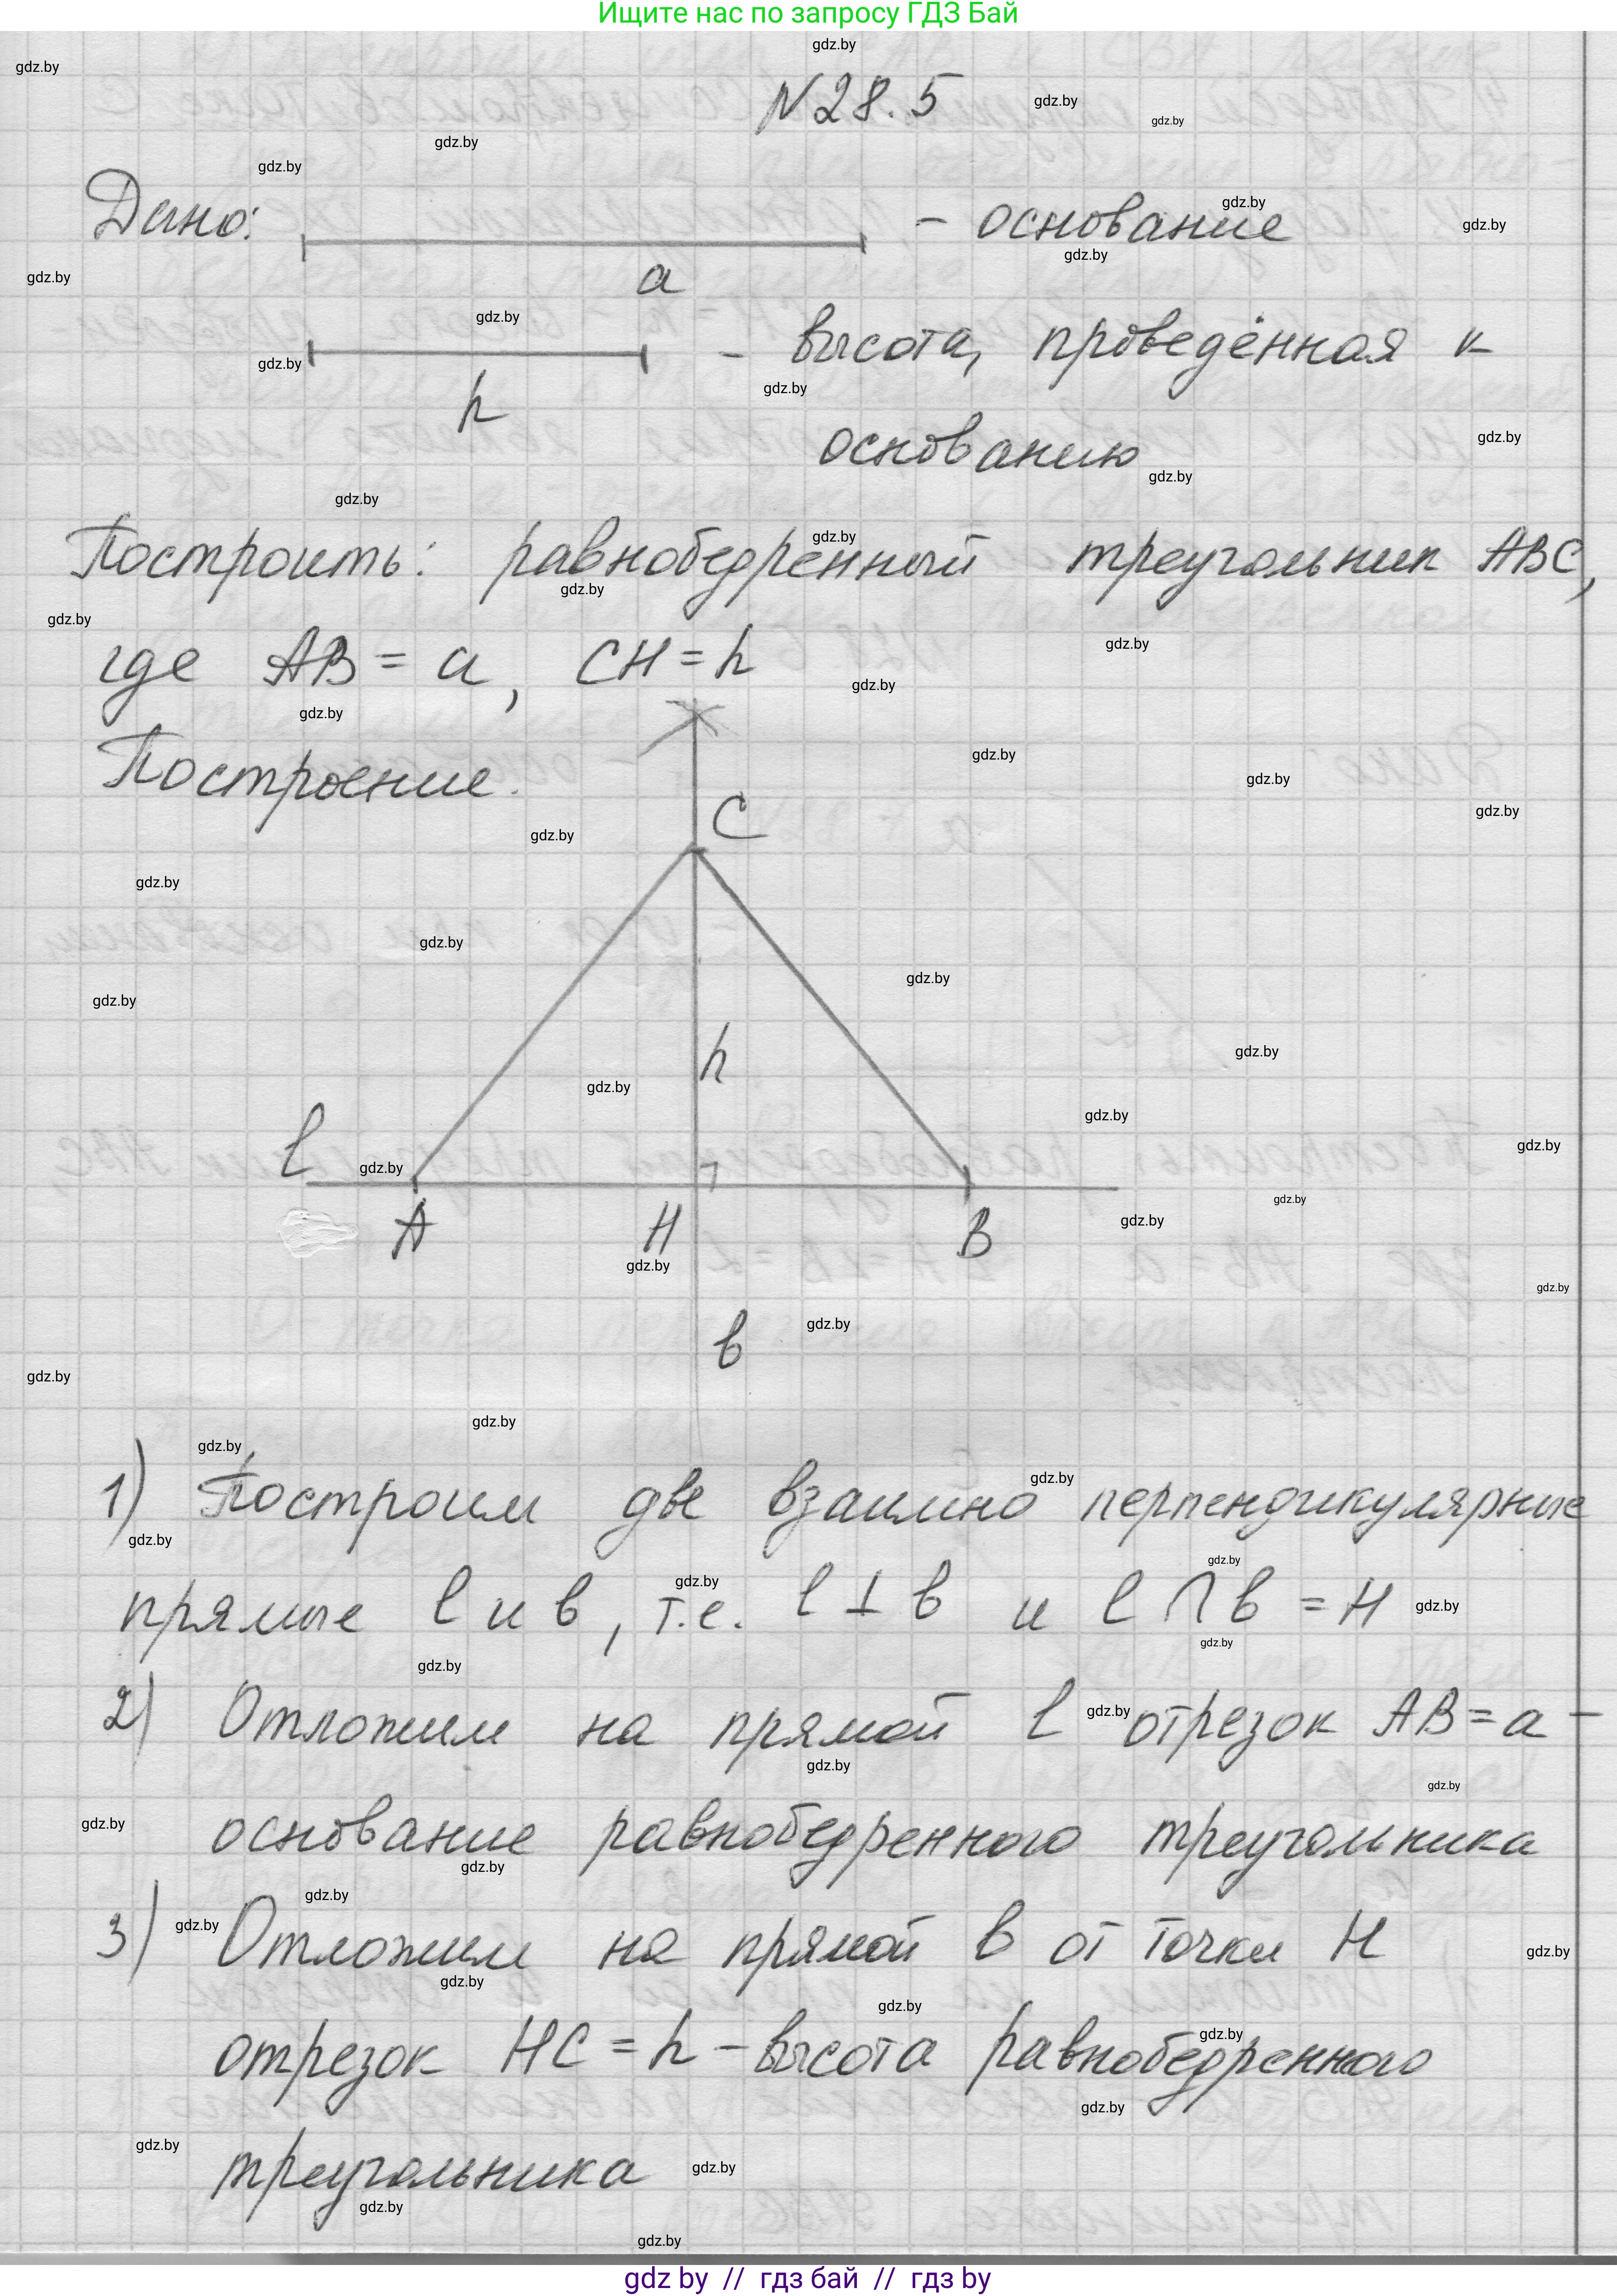 Ищите нас по запросу ГДЗ Бай
N28.5
Дано:
a
- основание
h
- высота, проведённая к
основанию
Построить: равнобедренный треугольник ABC,
где AB = a, CH = h
Построение.
C
h
l
A
H
B
b
1) Построим две взаимно перпендикулярные
прямые l и b, т.е. l ⊥ b и l ∩ b = H
2) Отложим на прямой l отрезок AB = a -
основание равнобедренного треугольника
3) Отложим на прямой b от точки H
отрезок HC = h - высота равнобедренного
треугольника
gdz.by
gdz by // гдз бай // гдз by